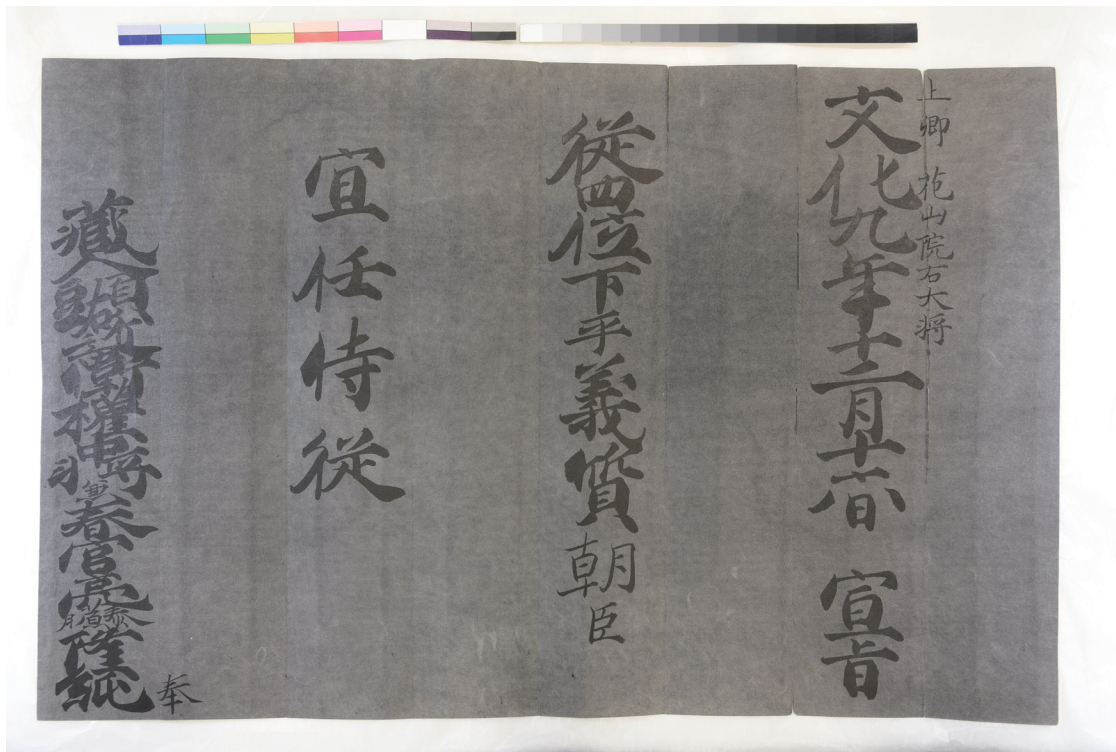 上卿 花山院右大将
文化九年十二月十六日 宣旨
従四位下平義質朝臣
宣任侍従
蔵人頭右近衛権中将兼春宮亮藤原隆純奉